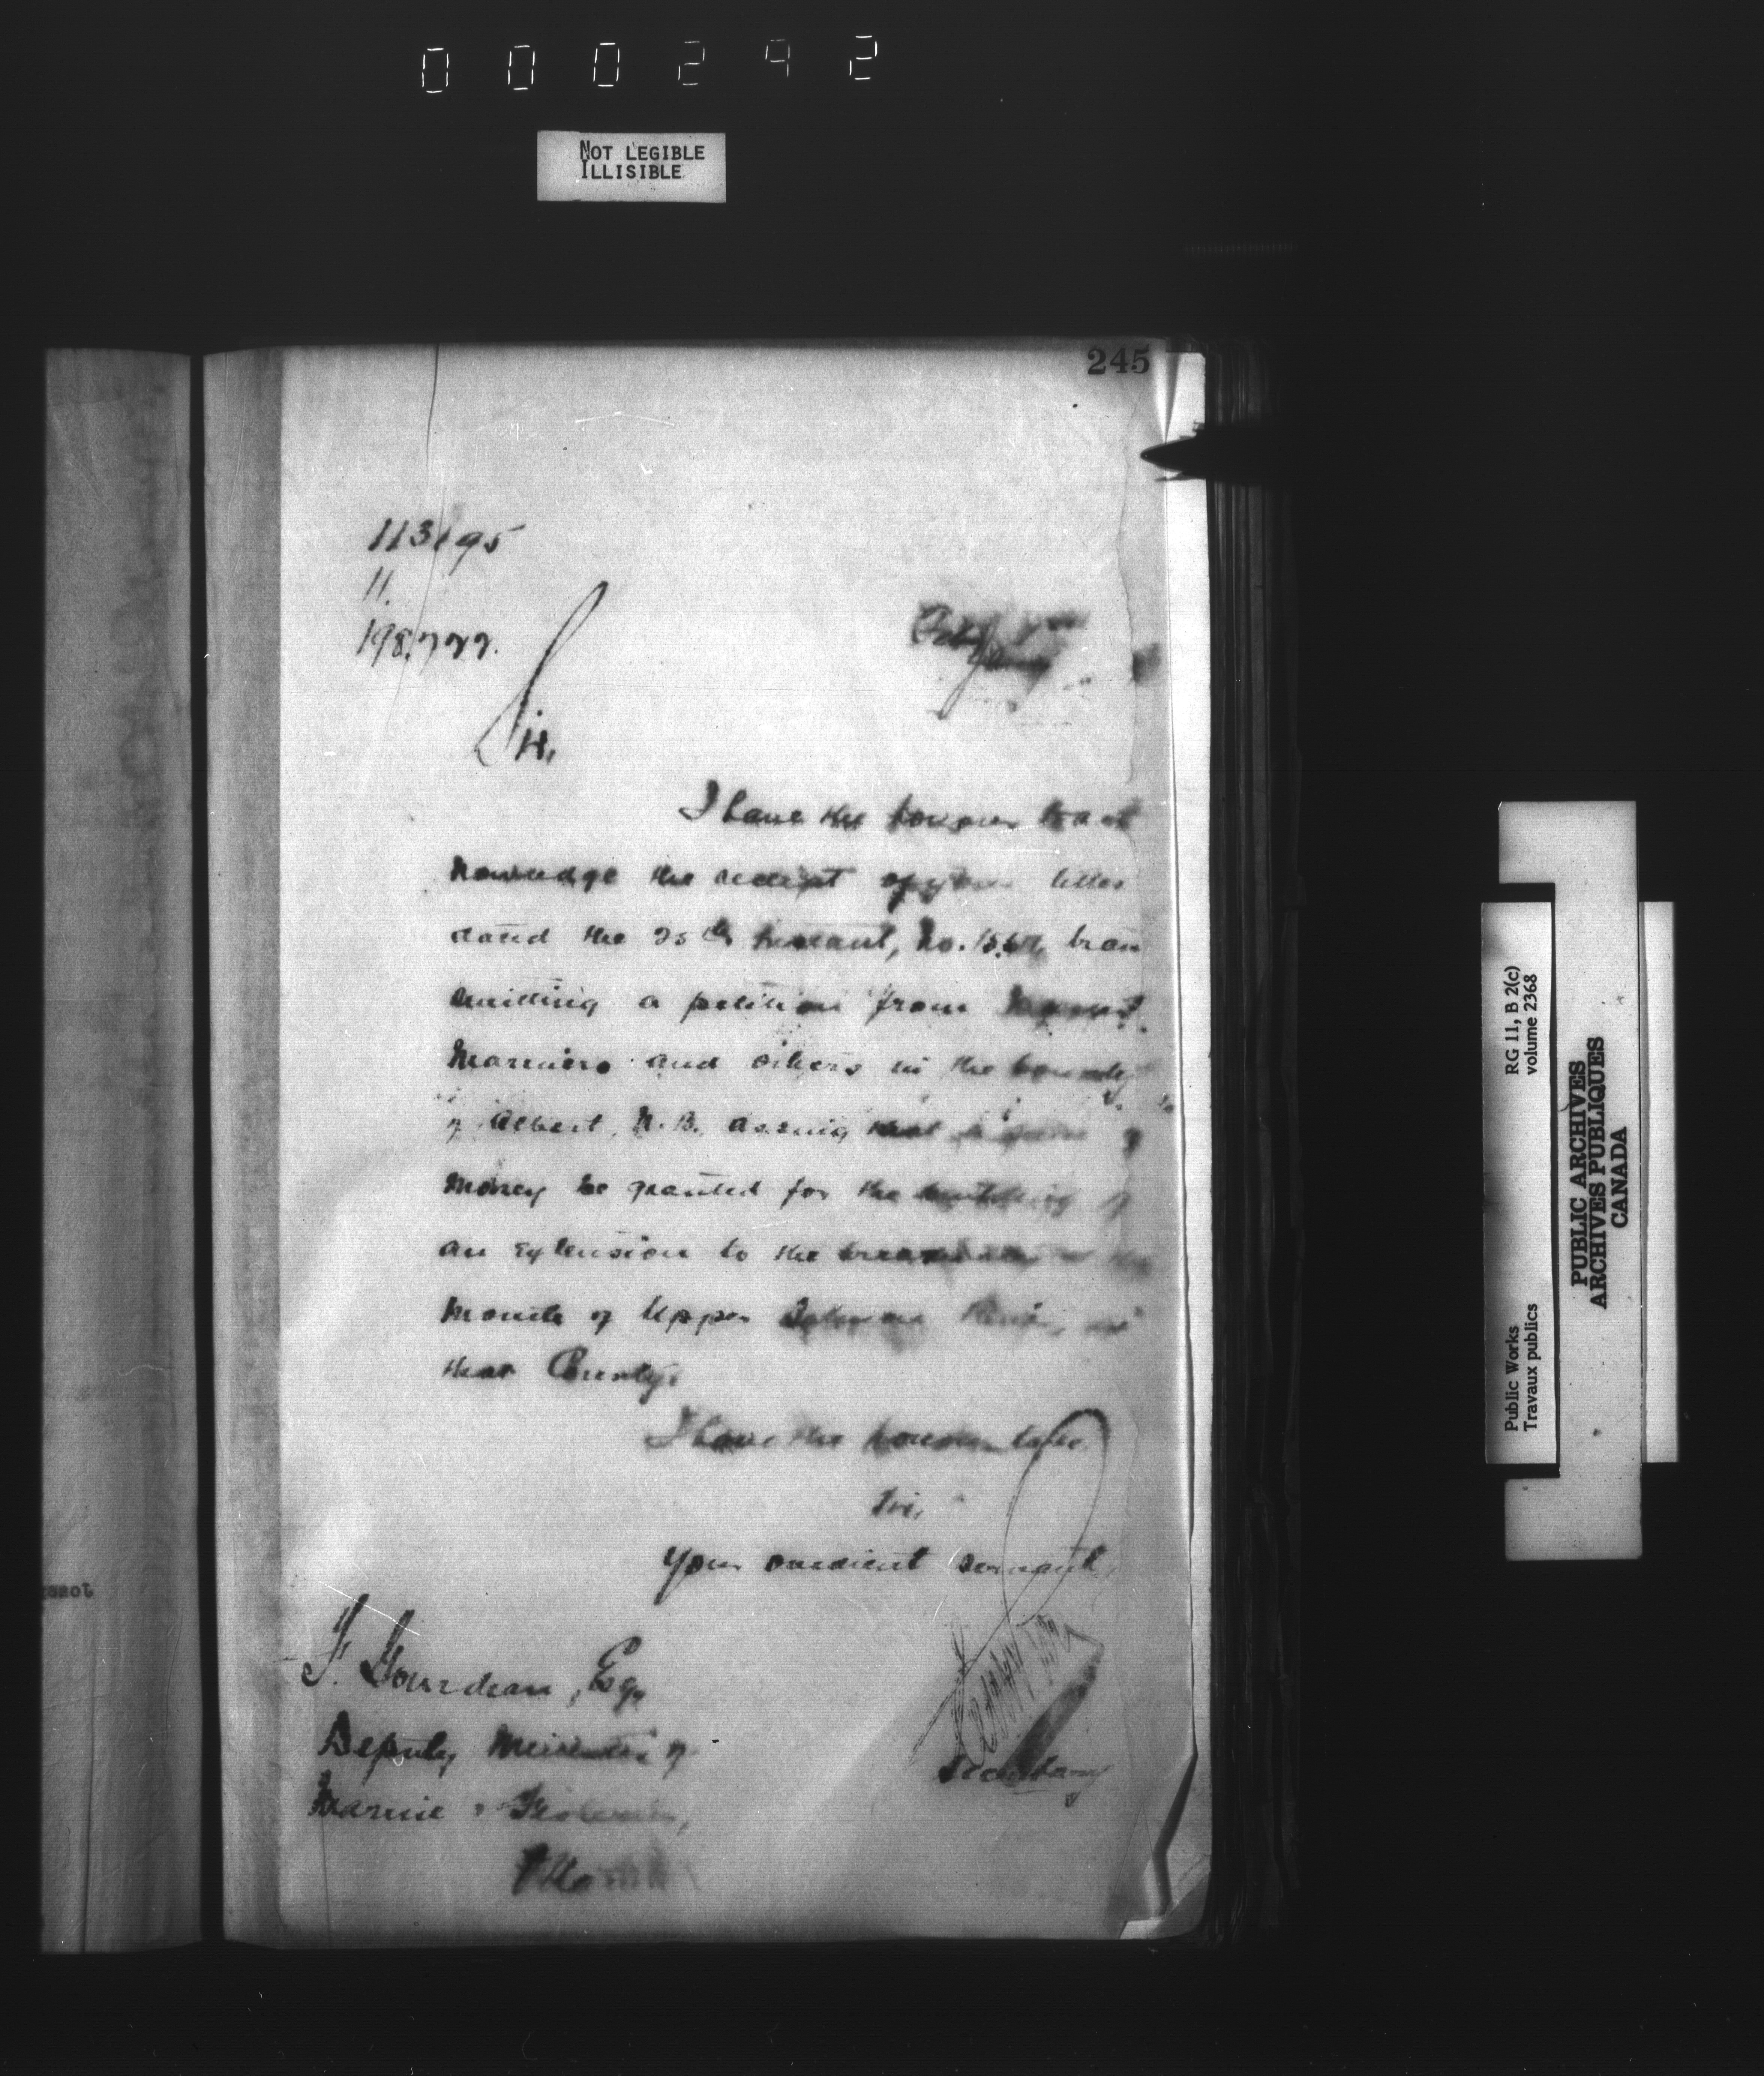 000292
NOT LEGIBLE
ILLISIBLE
245
113195
11.
Sir,
I have the honour to ack
nowledge the receipt of your letter
dated the 25th instant, No. tran
smitting a petition from
Mariners and others in the County
of Albert, N.B. asking that a sum of
money be granted for the building of
an extension to the breakwater the
mouth of Upper Salmon River, in
that County.
I have the honour to be
Sir,
Your obedient servant,
Secretary
F. Gourdeau, Esq.
Deputy Minister of
Marine & Fisheries,
Ottawa
Public Works
Travaux publics
RG 11, B 2(c)
volume 2368
PUBLIC ARCHIVES
ARCHIVES PUBLIQUES
CANADA